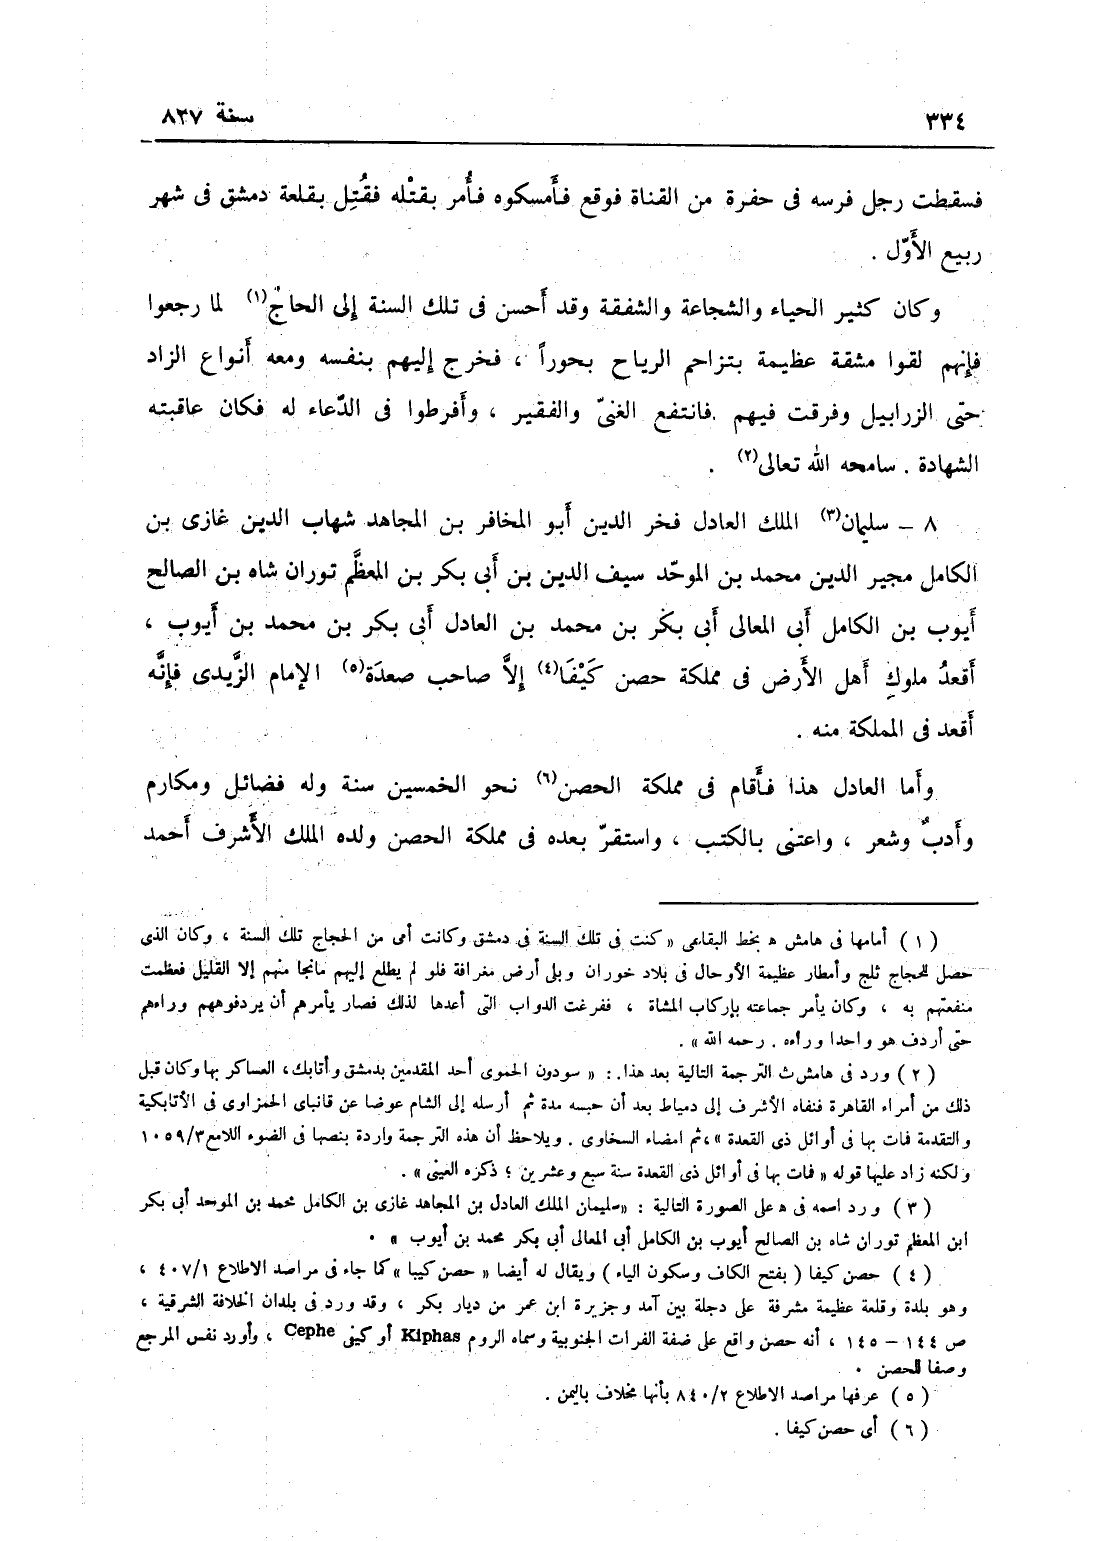 ٣٣٤
سنة ٨٢٧
فسقطت رجل فرسه فى حفرة من القناة فوقع فأَمسكوه فأُمر بقتْله فقُتِل بقلعة دمشق فى شهر
ربيع الأَوّل .
وكان كثير الحياء والشجاعة والشفقة وقد أَحسن فى تلك السنة إلى الحاجّ(١) لما رجعوا
فإِنهم لقوا مشقة عظيمة بتزاحم الرياح بحوراً ، فخرج إليهم بنفسه ومعه أَنواع الزاد
حتى الزرابيل وفرقت فيهم .فانتفع الغنىّ والفقير ، وأَفرطوا فى الدّعاء له فكان عاقبته
الشهادة . سامحه الله تعالى(٢) .
٨ – سليمان(٣) الملك العادل فخر الدين أَبو المخافر بن المجاهد شهاب الدين غازى بن
الكامل مجير الدين محمد بن الموحّد سيف الدين بن أَبى بكر بن المعظَّم توران شاه بن الصالح
أَيوب بن الكامل أَبى المعالى أَبى بكر بن محمد بن العادل أَبى بكر بن محمد بن أَيوب ،
أَقعدُ ملوكِ أَهل الأَرض فى مملكة حصن كَيْفَا(٤) إلاَّ صاحب صعدَة(٥) الإمام الزَّيدى فإِنَّه
أَقعد فى المملكة منه .
وأَما العادل هذا فأَقام فى مملكة الحصن(٦) نحو الخمسين سنة وله فضائل ومكارم
وأَدبٌ وشعر ، واعتنى بالكتب ، واستقرّ بعده فى مملكة الحصن ولده الملك الأَشرف أَحمد
(١) أمامها فى هامش ه بخط البقاعى « كنت فى تلك السنة فى دمشق وكانت أمى من الحجاج تلك السنة ، وكان الذى
حصل للحجاج ثلج وأمطار عظيمة الأوحال فى بلاد خوران وبلى أرض مغرافة فلو لم يطلع إليهم مانجا منهم إلا القليل فعظمت
منفعتهم به ، وكان يأمر جماعته بإركاب المشاة ، ففرغت الدواب التى أعدها لذلك فصار يأمرهم أن يردفوهم وراءهم
حتى أردف هو واحدا وراءه . رحمه الله » .
(٢) ورد فى هامش ث الترجمة التالية بعد هذا : « سودون الحموى أحد المقدمين بدمشق وأتابك، العساكر بها وكان قبل
ذلك من أمراء القاهرة فنفاه الأشرف إلى دمياط بعد أن حبسه مدة ثم أرسله إلى الشام عوضا عن قانباى الحمزاوى فى الأتابكية
والتقدمة فات بها فى أوائل ذى القعدة »،ثم امضاء السخاوى . ويلاحظ أن هذه الترجمة واردة بنصها فى الضوء اللامع ١٠٥٩/٣
ولكنه زاد عليها قوله « فات بها فى أوائل ذى القعدة سنة سبع وعشرين ؛ ذكره العينى » .
(٣) ورد اسمه فى ه على الصورة التالية : «سليمان الملك العادل بن المجاهد غازى بن الكامل محمد بن الموحد أبى بكر
ابن المعظم توران شاه بن الصالح أيوب بن الكامل أبى المعالى أبى بكر محمد بن أيوب » .
(٤) حصن كيفا (بفتح الكاف وسكون الياء) ويقال له أيضا « حصن كيبا » كما جاء فى مراصد الاطلاع ٤٠٧/١ ،
وهو بلدة وقلعة عظيمة مشرفة على دجلة بين آمد وجزيرة ابن عمر من ديار بكر ، وقد ورد فى بلدان الخلافة الشرقية ،
ص ١٤٤ – ١٤٥ ، أنه حصن واقع على ضفة الفرات الجنوبية وسماه الروم Kiphas أو كيفى Cephe ، وأورد نفس المرجع
وصفا للحصن .
(٥) عرفها مراصد الاطلاع ٨٤٠/٢ بأنها مخلاف باليمن .
(٦) أى حصن كيفا .